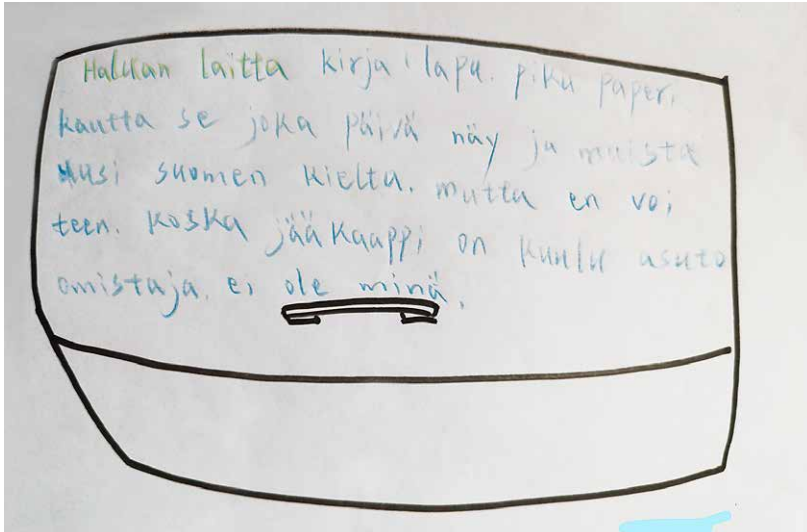 Halukan laitta kirja lapu. piku paperi
kautta se joka päivä näy ja muista
uusi suomen kielta. mutta en voi
teen. koska jääkaappi on kuulu asuto
omistaja. ei ole minä.